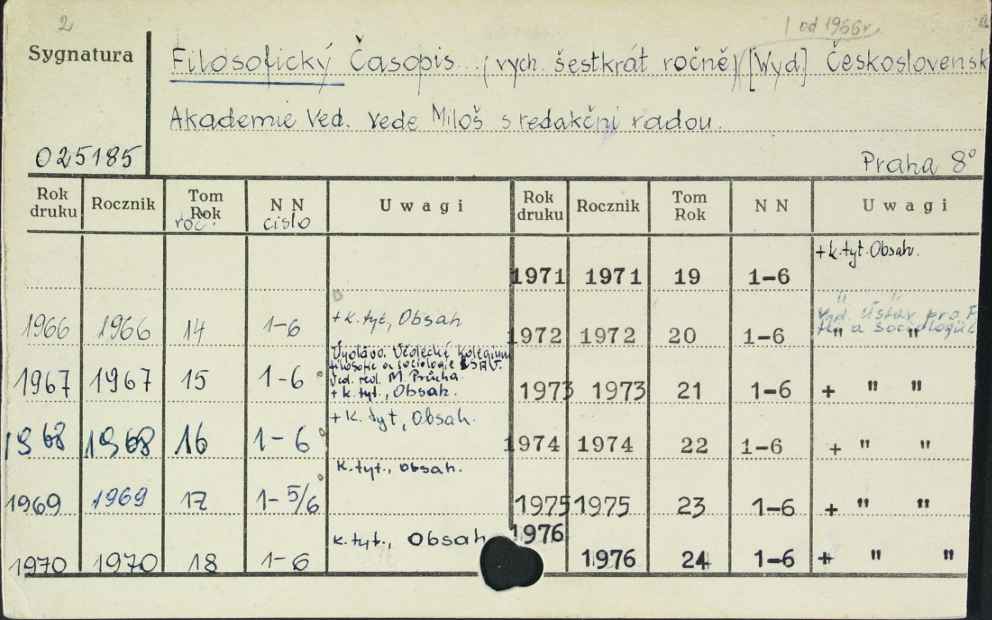 2
1 od 1966r.
Sygnatura
Filosofický Časopis. (vych. šestkrát ročně) [Wyd] Československ
Akademie Ved. Vede Miloš s redakčni radou.
025185
Praha 8°
Rok druku Rocznik Tom Rok roč. N N cislo Uwagi Rok druku Rocznik Tom Rok N N Uwagi
1971 1971 19 1-6 + k. tyt. Obsah.
1966 1966 14 1-6 + k. tyt, Obsah 1972 1972 20 1-6 " "
Vyd. Ústav pro F
a sociologii
Vědecké Kolegium
filosofie a sociologie ČSAV.
Ved. red. M. Průcha
1967 1967 15 1-6 + k. tyt., Obsah. 1973 1973 21 1-6 + " "
1968 1968 16 1-6 + k. tyt, Obsah. 1974 1974 22 1-6 + " "
1969 1969 17 1-5/6 k. tyt., Obsah. 1975 1975 23 1-6 + " "
1970 1970 18 1-6 k. tyt., Obsah 1976 1976 24 1-6 + " "